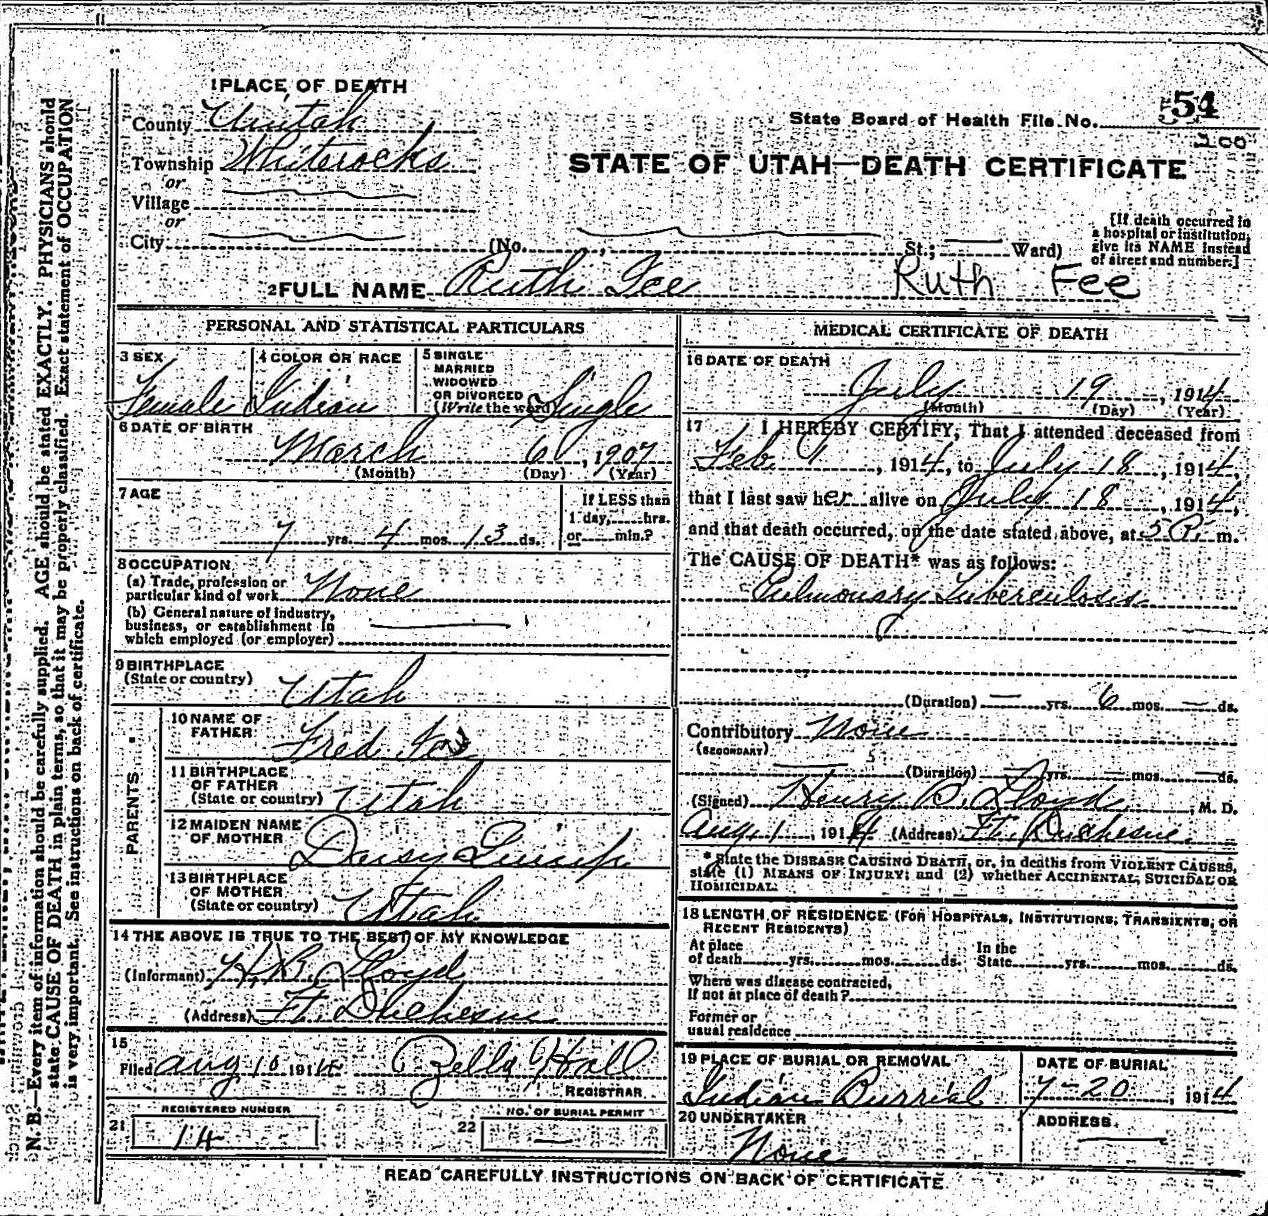 1 PLACE OF DEATH
County Uintah
State Board of Health File No. 54
Township Whiterocks
100
STATE OF UTAH—DEATH CERTIFICATE
or
Village
or
City (No. St.; Ward)
[If death occurred in
a hospital or institution,
give its NAME instead
of street and number.]
2 FULL NAME Ruth Fee Ruth Fee
PERSONAL AND STATISTICAL PARTICULARS
3 SEX Female
4 COLOR OR RACE Indian
5 SINGLE
MARRIED
WIDOWED
OR DIVORCED
(Write the word) Single
6 DATE OF BIRTH
March 6, 1907
(Month) (Day) (Year)
7 AGE
7 yrs. 4 mos. 13 ds.
If LESS than
1 day, hrs.
or min.?
8 OCCUPATION
(a) Trade, profession or
particular kind of work None
(b) General nature of industry,
business, or establishment in
which employed (or employer)
9 BIRTHPLACE
(State or country) Utah
PARENTS
10 NAME OF
FATHER Fred
11 BIRTHPLACE
OF FATHER
(State or country) Utah
12 MAIDEN NAME
OF MOTHER Daisy
13 BIRTHPLACE
OF MOTHER
(State or country) Utah
14 THE ABOVE IS TRUE TO THE BEST OF MY KNOWLEDGE
(Informant) H. B. Lloyd
(Address) Ft. Duchesne
15
Filed Aug 10 1914 Zella Hall
REGISTRAR
21 REGISTERED NUMBER
14
22 NO. OF BURIAL PERMIT
—
MEDICAL CERTIFICATE OF DEATH
16 DATE OF DEATH
July 19, 1914
(Month) (Day) (Year)
17 I HEREBY CERTIFY, That I attended deceased from
Feb 1, 1914, to July 18, 1914,
that I last saw her alive on July 18, 1914,
and that death occurred, on the date stated above, at 5 P. m.
The CAUSE OF DEATH* was as follows:
Pulmonary Tuberculosis
(Duration) — yrs. 6 mos. — ds.
Contributory None
(SECONDARY)
(Duration) — yrs. — mos. — ds.
(Signed) Henry B. Lloyd, M. D.
Aug 1, 1914 (Address) Ft. Duchesne
* State the DISEASE CAUSING DEATH, or, in deaths from VIOLENT CAUSES,
state (1) MEANS OF INJURY; and (2) whether ACCIDENTAL, SUICIDAL OR
HOMICIDAL.
18 LENGTH OF RESIDENCE (FOR HOSPITALS, INSTITUTIONS, TRANSIENTS, OR
RECENT RESIDENTS)
At place
of death yrs. mos. ds.
In the
State yrs. mos. ds.
Where was disease contracted,
If not at place of death?
Former or
usual residence
19 PLACE OF BURIAL OR REMOVAL
Indian Burrial
DATE OF BURIAL
7-20, 1914
20 UNDERTAKER
None
ADDRESS
READ CAREFULLY INSTRUCTIONS ON BACK OF CERTIFICATE
N. B.—Every item of information should be carefully supplied. AGE should be stated EXACTLY. PHYSICIANS should
state CAUSE OF DEATH in plain terms, so that it may be properly classified. Exact statement of OCCUPATION
is very important. See instructions on back of certificate.